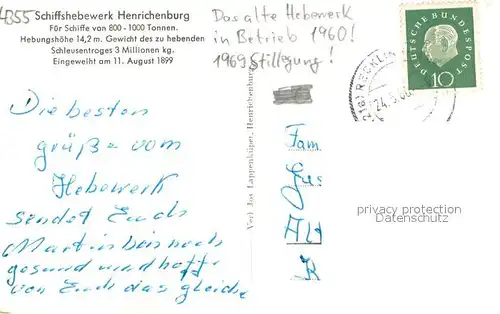 4355 Schiffshebewerk Henrichenburg
Für Schiffe von 800 - 1000 Tonnen.
Hebungshöhe 14,2 m. Gewicht des zu hebenden
Schleusentroges 3 Millionen kg.
Eingeweiht am 11. August 1899
Das alte Hebewerk
in Betrieb 1960!
1969 Stillegung!
DEUTSCHE BUNDESPOST
10
(216) RECKLIN
24.5.60
Die besten
grüße vom
Hebewerk
sendet Euch
Martin bei noch
gesund und hoffe
von Euch das gleiche
Verl. Jos. Lappenküper, Henrichenburg
Fam
Gus
Alt
K
privacy protection
Datenschutz